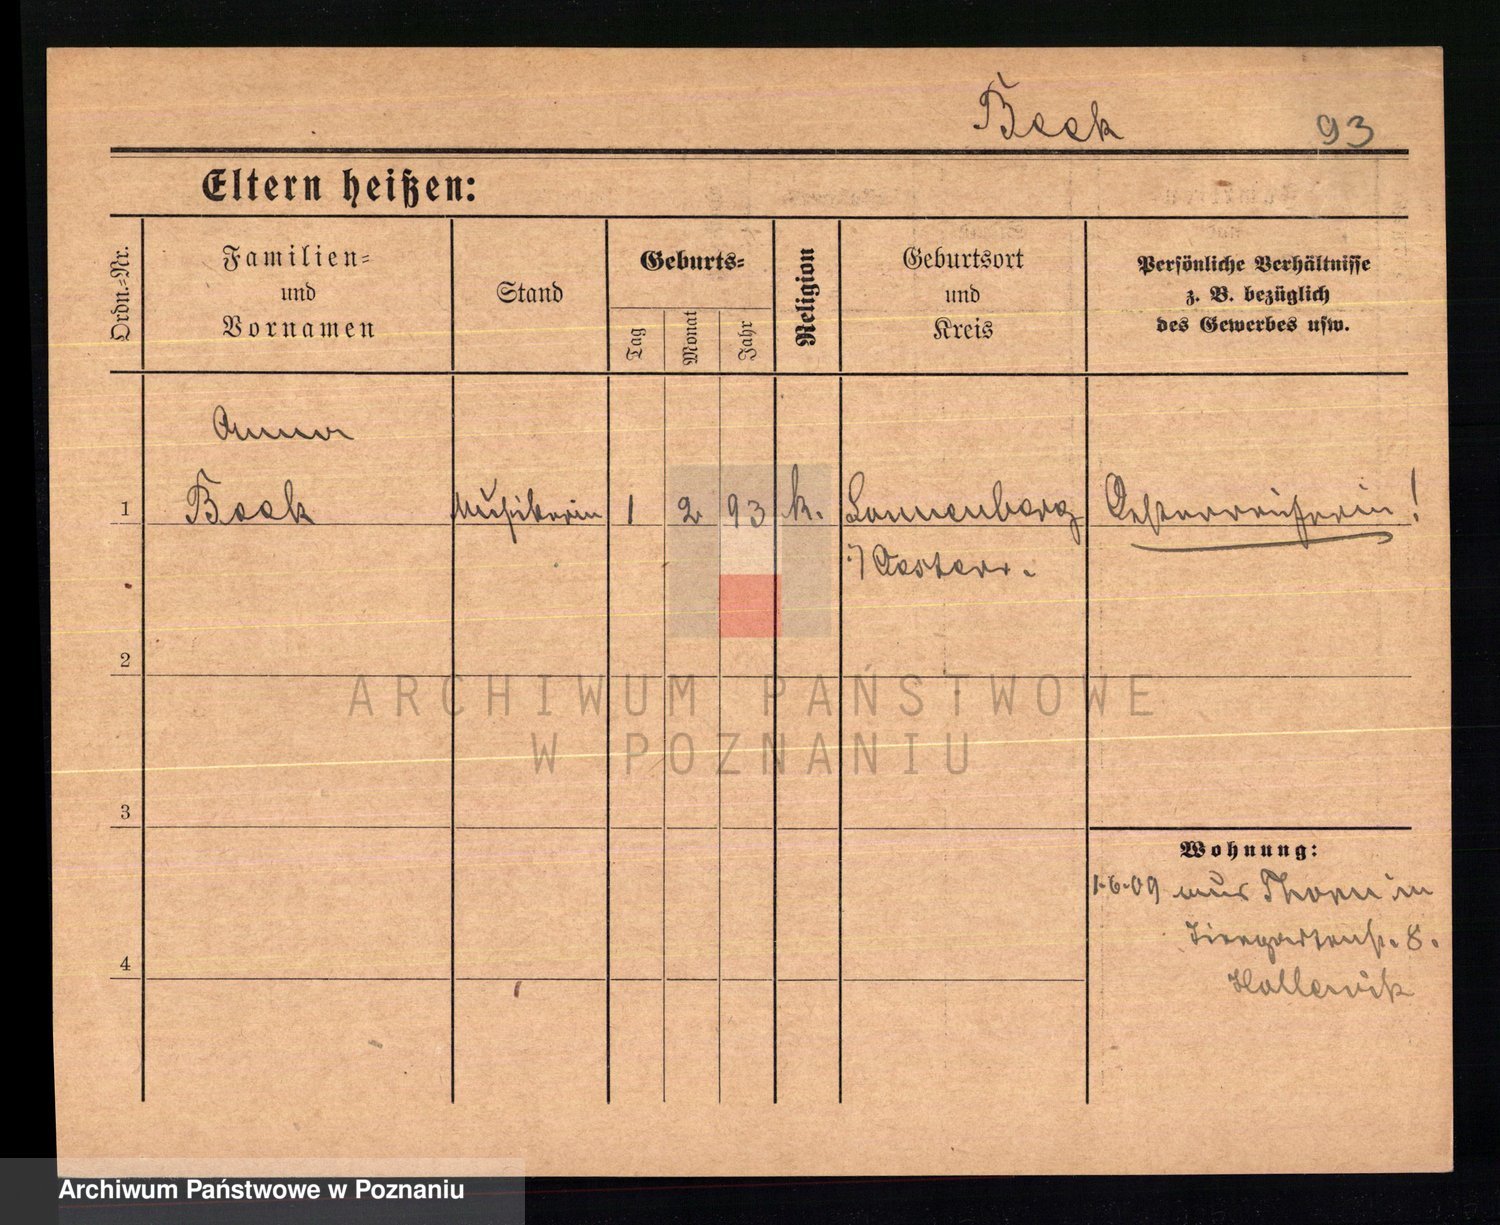 Beek 93
Eltern heißen:
Ordn.-Nr.
Familien-
und
Vornamen
Stand
Geburts-
Tag
Monat
Jahr
Religion
Geburtsort
und
Kreis
Persönliche Verhältnisse
z. B. bezüglich
des Gewerbes usw.
Anna
1 Beek Musikerin 1 2 93 k. Sonnenberg Oesterreicherin!
i/ Oesterr.
2
ARCHIWUM PAŃSTWOWE
W POZNANIU
3
Wohnung:
1.6.09 aus Thorn in
Tiergartenstr. 8.
4
Archiwum Państwowe w Poznaniu